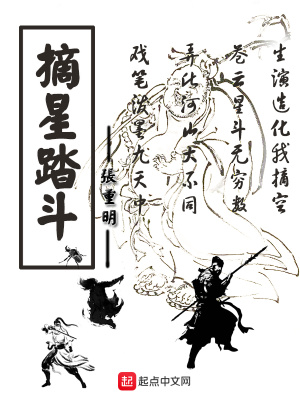 生演造化我摘空
苍云星斗无穷数
弄此河山大不同
戏笔泼墨九天中
摘星踏斗
張重明
起点中文网